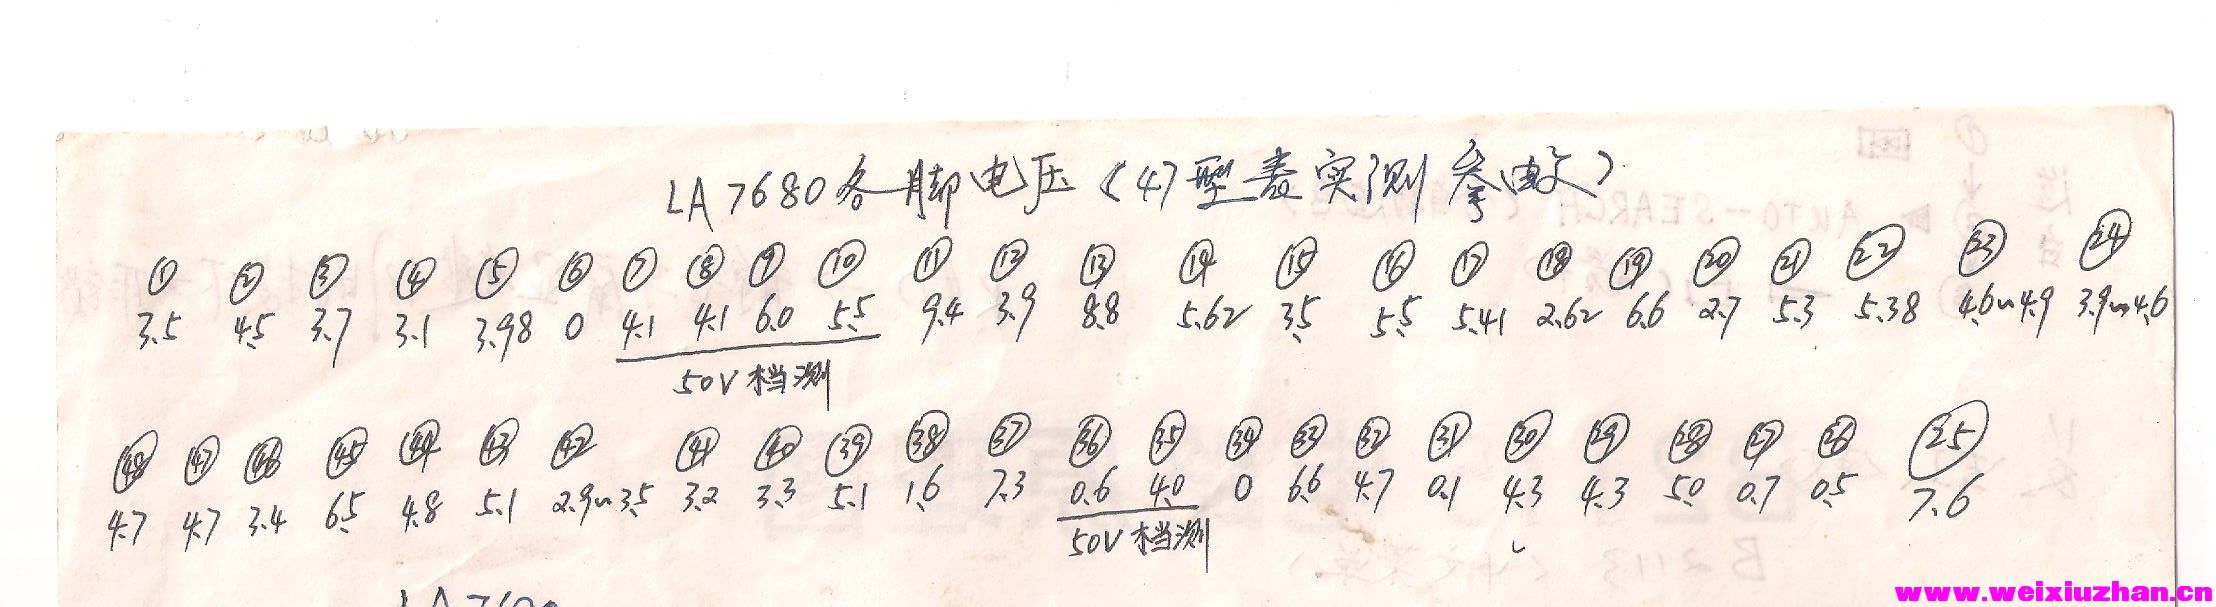 LA7680各脚电压(47型表实测参数)
① ② ③ ④ ⑤ ⑥ ⑦ ⑧ ⑨ ⑩ ⑪ ⑫ ⑬ ⑭ ⑮ ⑯ ⑰ ⑱ ⑲ ⑳ ㉑ ㉒ ㉓ ㉔
3.5 4.5 3.7 3.1 3.98 0 4.1 4.1 6.0 5.5 9.4 3.9 8.8 5.62 3.5 5.5 5.41 2.62 6.6 2.7 5.3 5.38 4.6~4.9 3.9~4.6
50V档测
㊽ ㊼ ㊻ ㊺ ㊹ ㊸ ㊷ ㊶ ㊵ ㊴ ㊳ ㊲ ㊱ ㉟ ㉞ ㉝ ㉜ ㉛ ㉚ ㉙ ㉘ ㉗ ㉖ ㉕
4.7 4.7 3.4 6.5 4.8 5.1 2.9~3.5 3.2 3.3 5.1 1.6 7.3 0.6 4.0 0 6.6 4.7 0.1 4.3 4.3 5.0 0.7 0.5 7.6
50V档测
www.weixiuzhan.cn